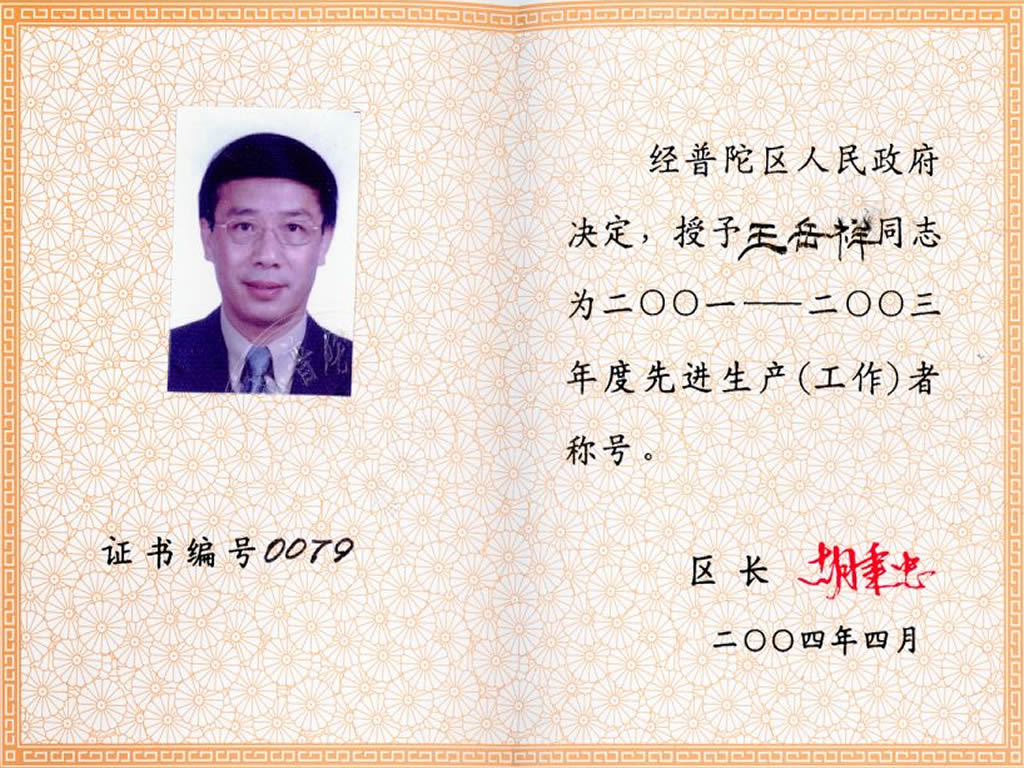 经普陀区人民政府
决定，授予王岳祥同志
为二〇〇一——二〇〇三
年度先进生产(工作)者
称号。
证书编号0079
区长 胡秉忠
二〇〇四年四月